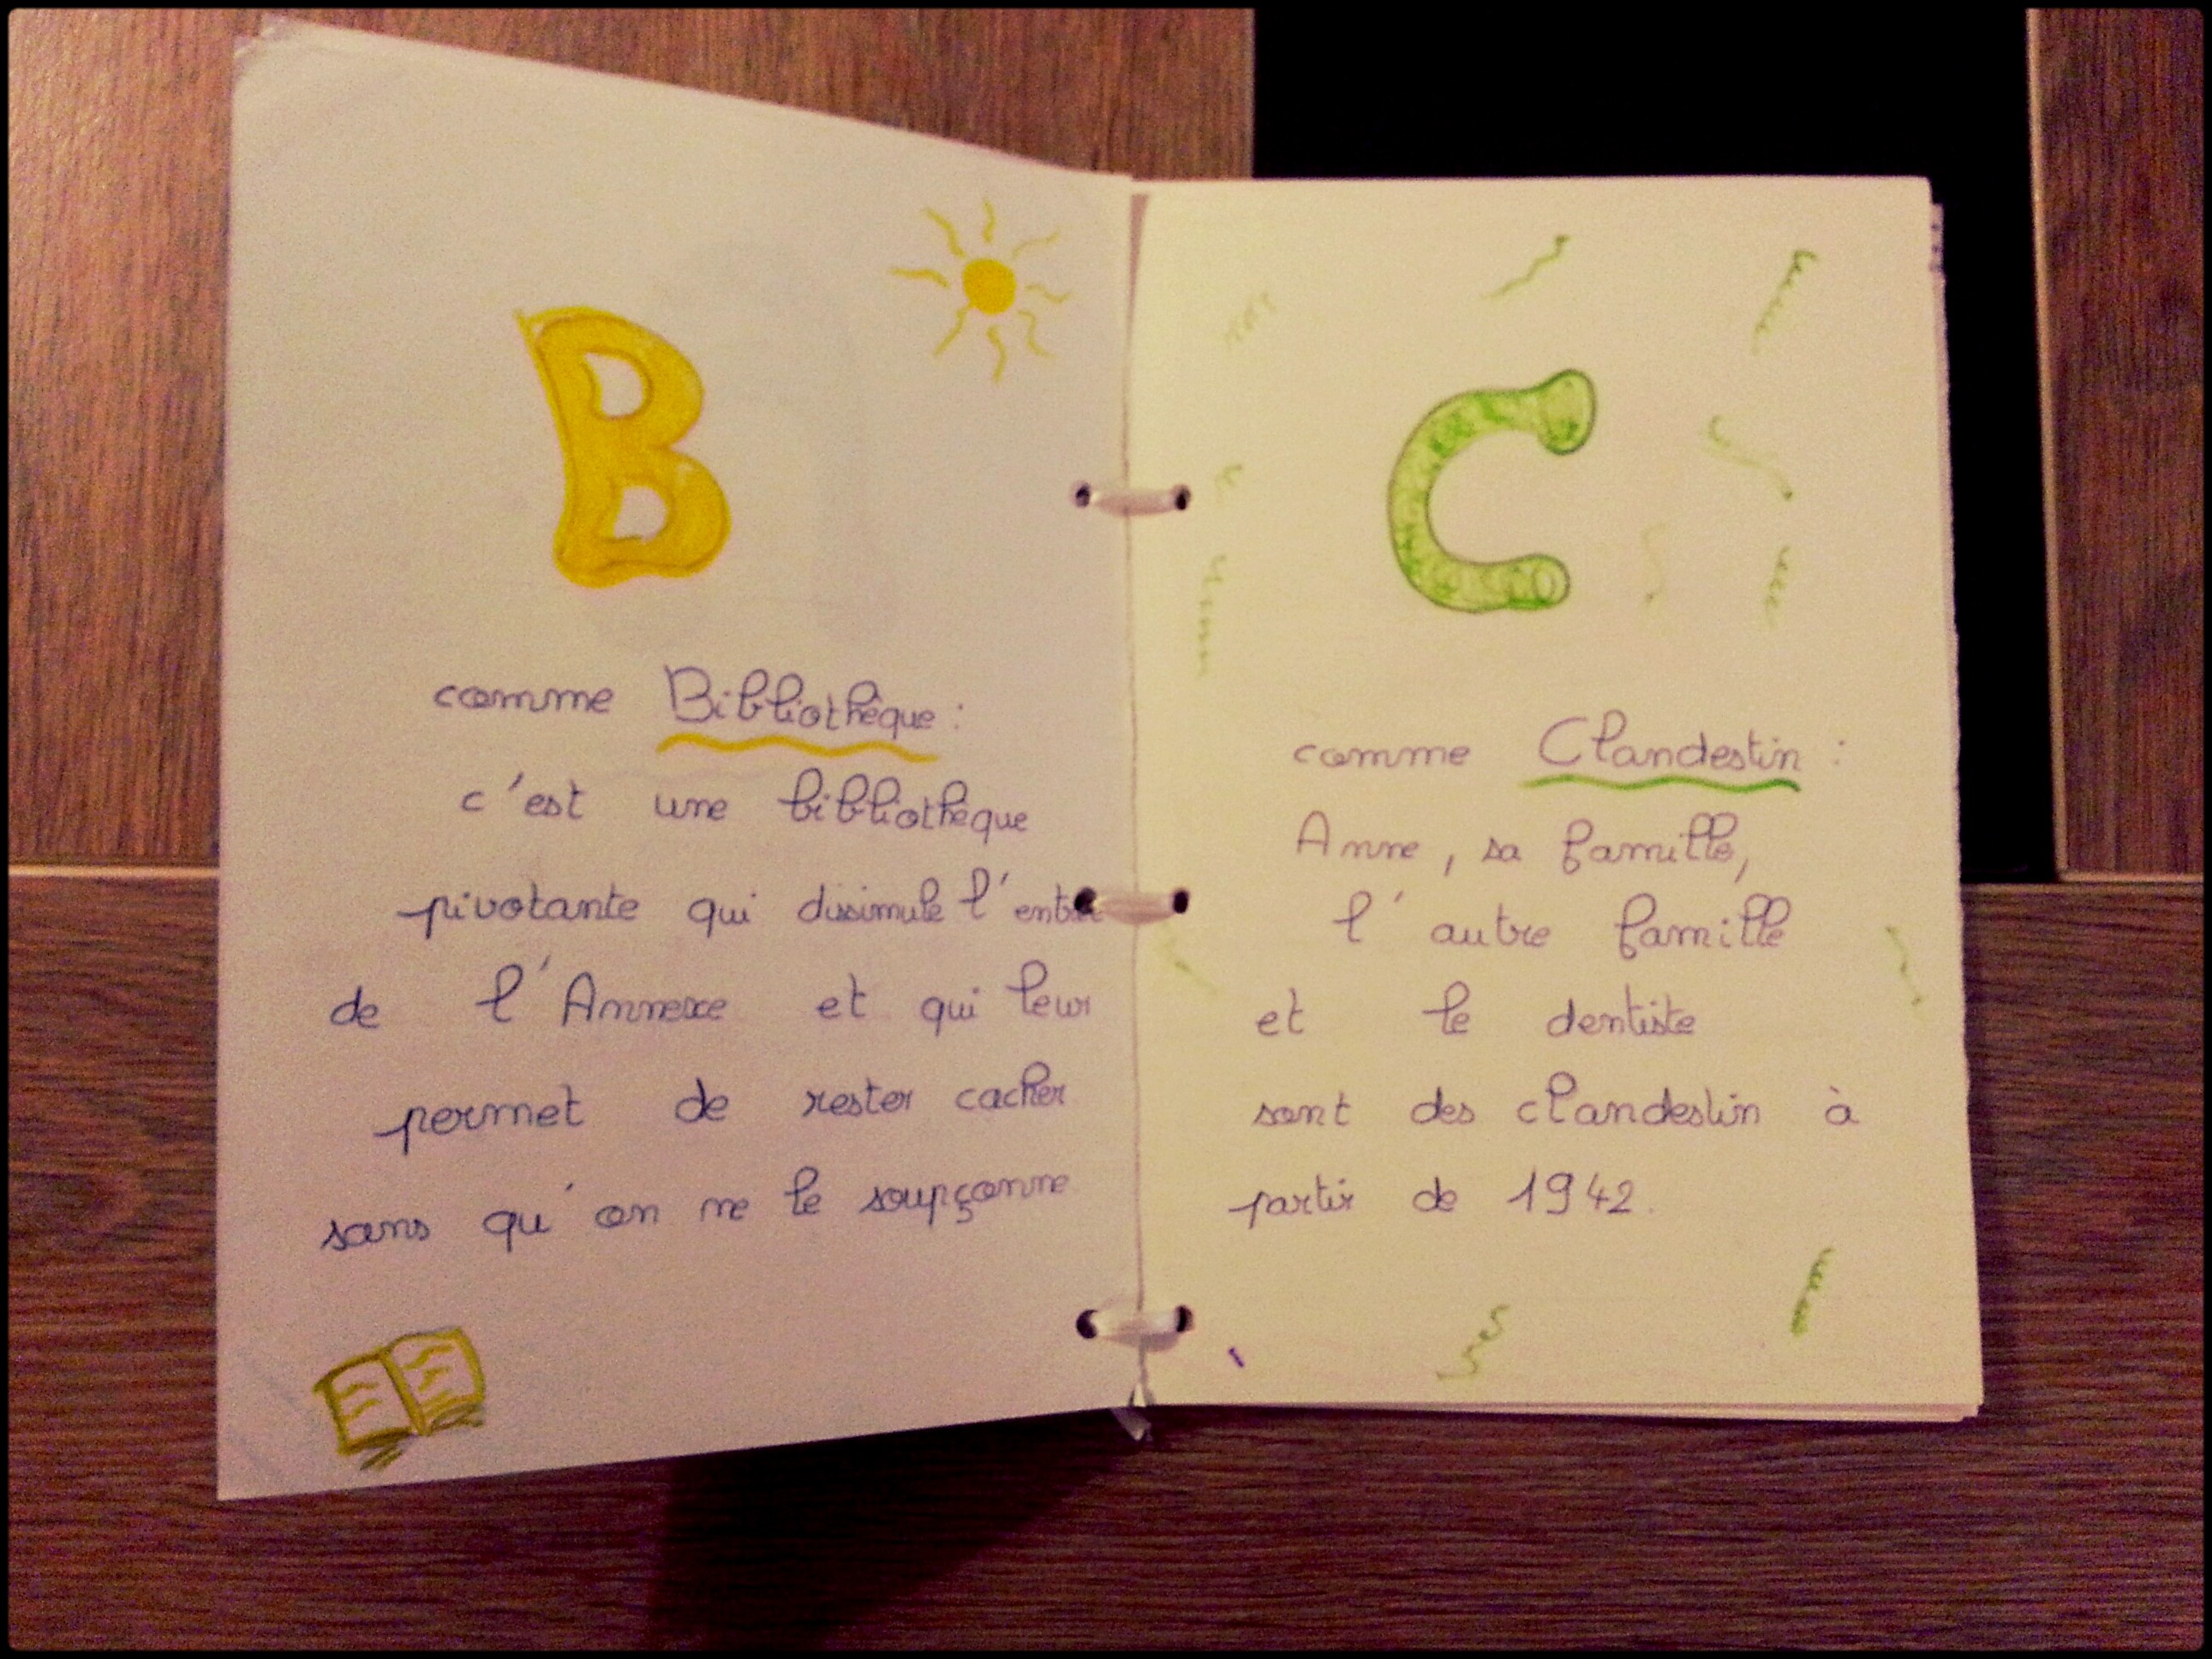 B
comme Bibliothèque :
c'est une bibliothèque
pivotante qui dissimule l'entrée
de l'Annexe et qui leur
permet de rester cacher
sans qu'on ne le soupçonne
C
comme Clandestin :
Anne, sa famille,
l'autre famille
et le dentiste
sont des clandestin à
partir de 1942.